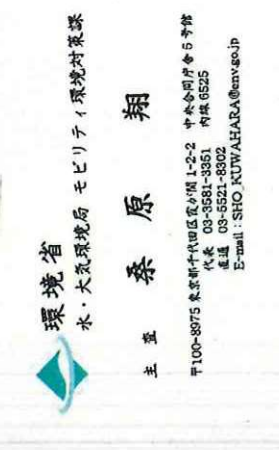 環境省
水・大気環境局 モビリティ環境対策課
主査 桑原 翔
〒100-8975 東京都千代田区霞が関 1-2-2 中央合同庁舎 5 号館
代表 03-3581-3351 内線 6525
直通 03-5521-8302
E-mail : SHO_KUWAHARA@env.go.jp